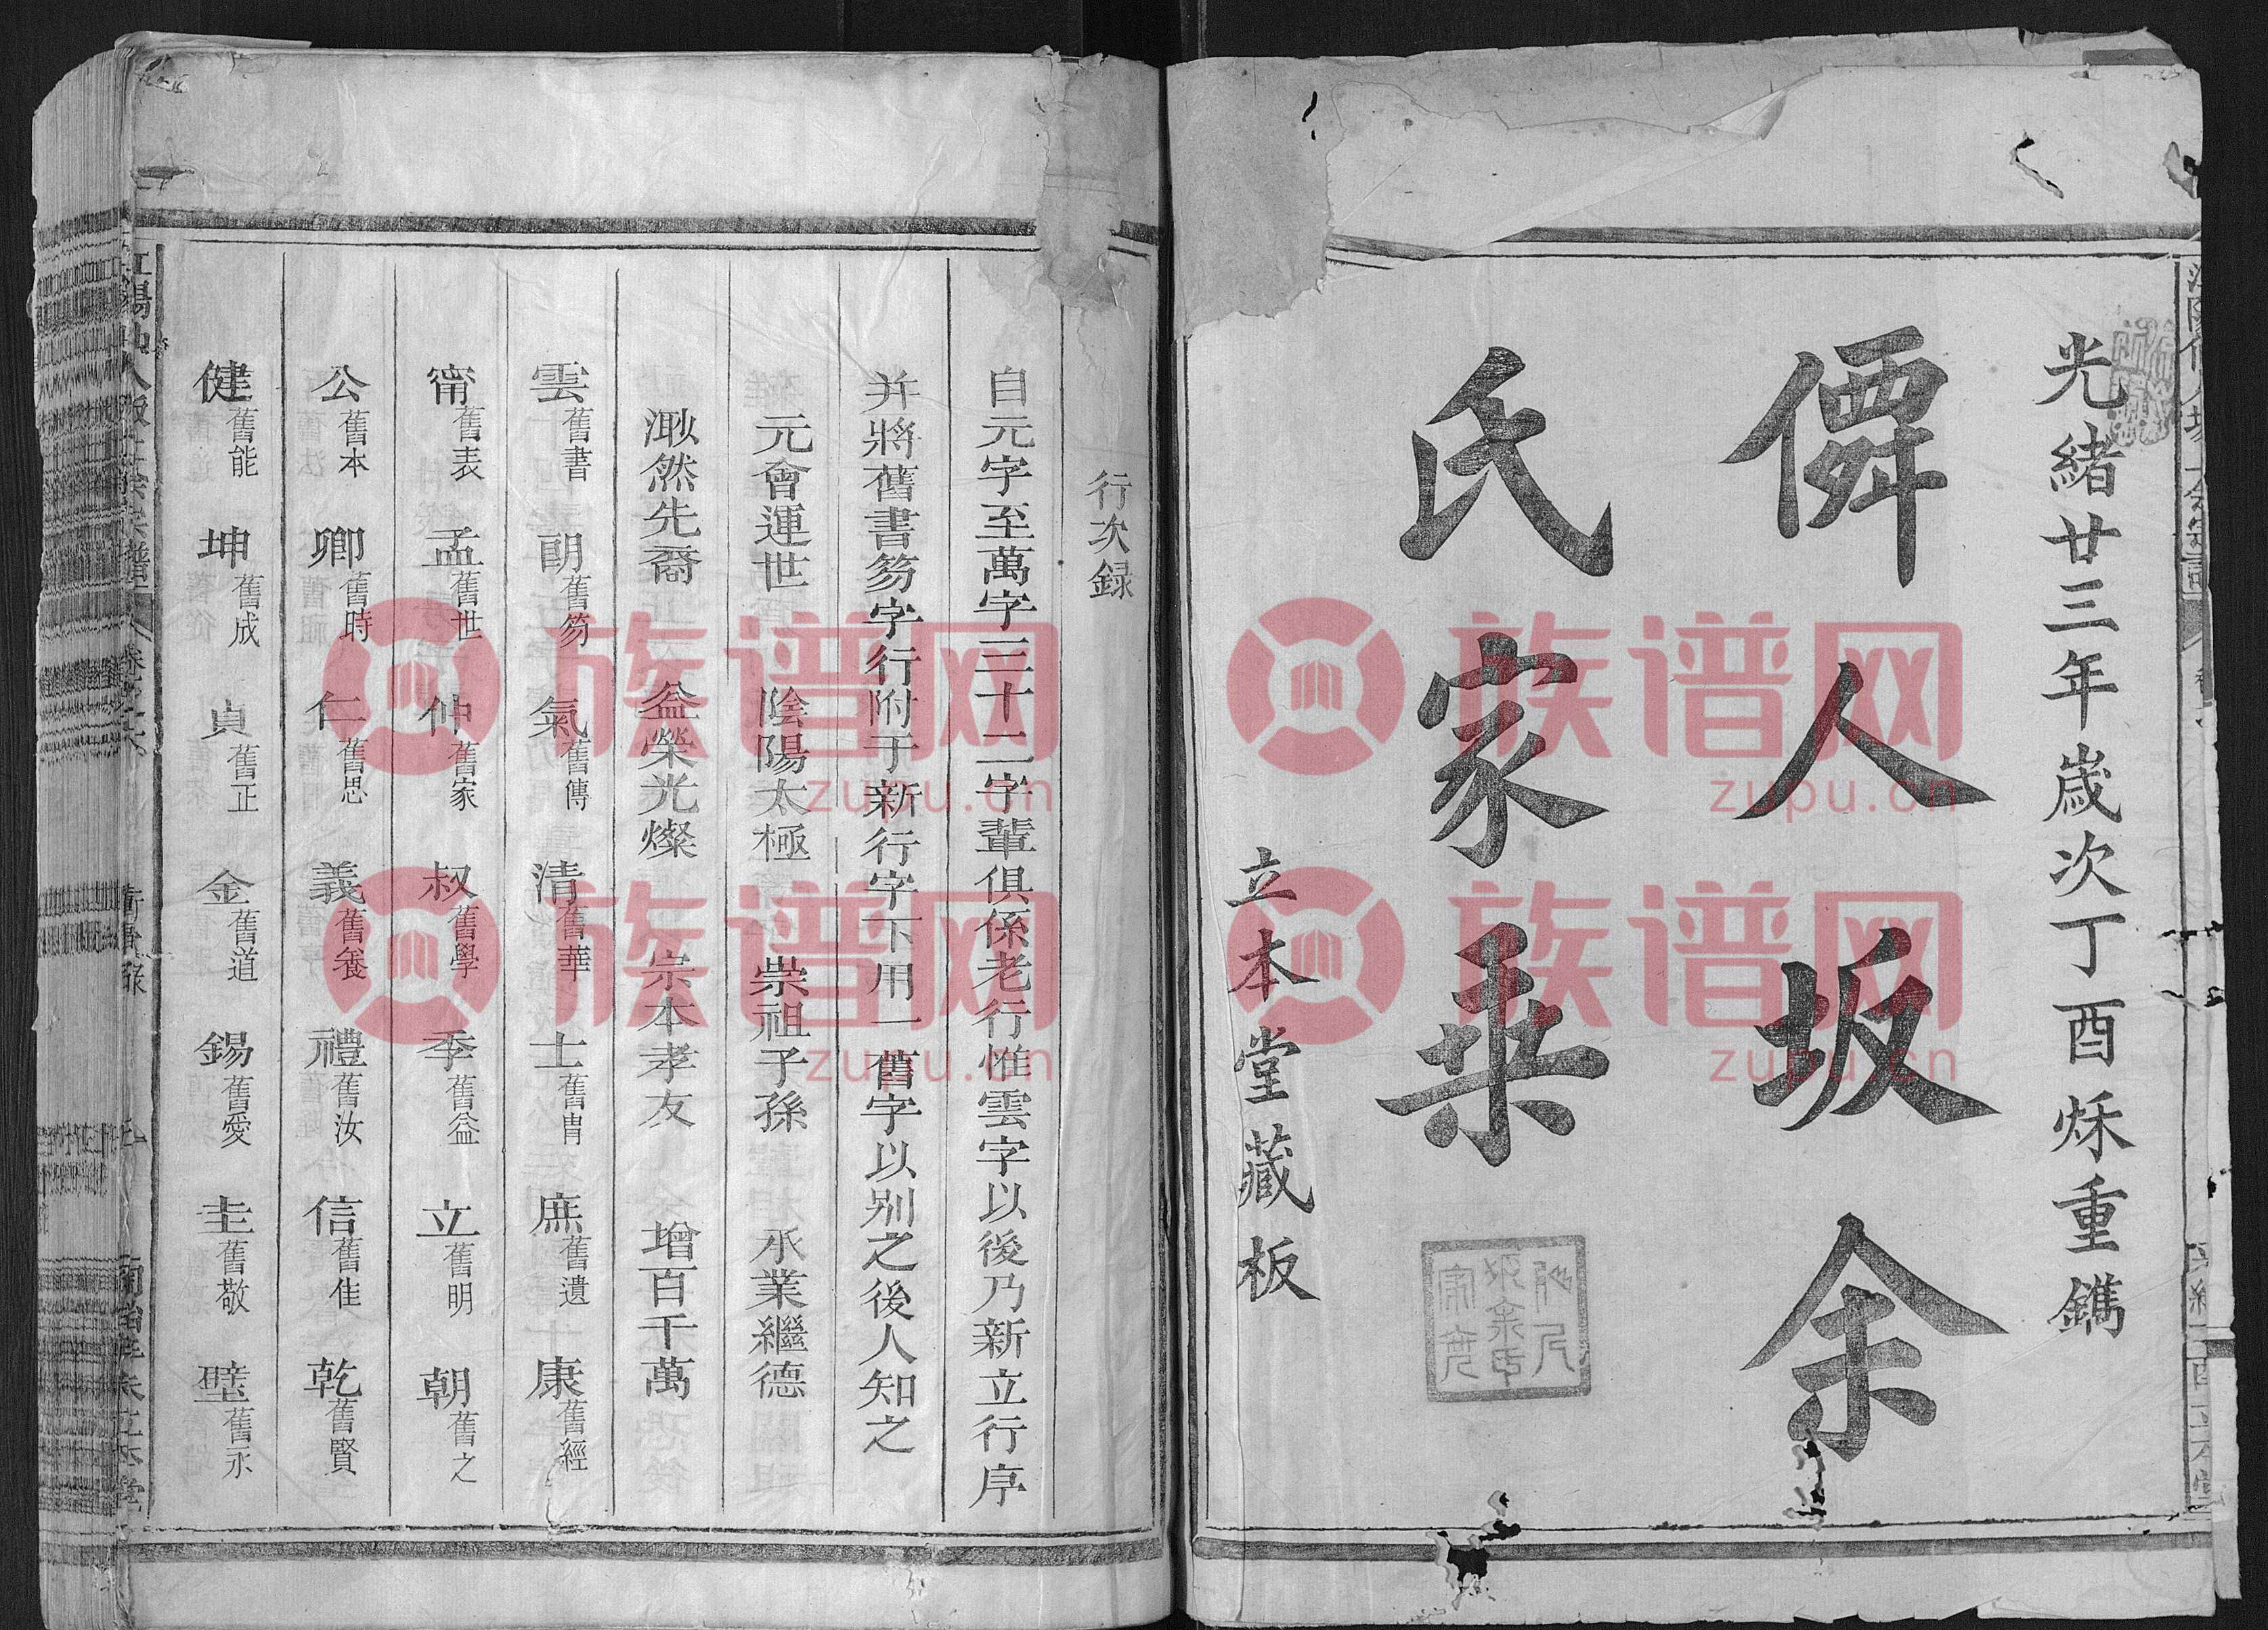 光緒廿三年歲次丁酉秌重鐫
僊人坂余
氏家乘
立本堂藏板
行次録
自元字至萬字三十二字輩俱係老行惟雲字以後乃新立行序
并將舊書笏字行附于新行行字下用一舊字以别之後人知之
元會運世 陰陽太極 崇祖子孫 承業繼德
溆然先裔 益榮光燦 宗本孝友 增百千萬
雲舊書 朝舊笏 氣舊傳 清舊華 士舊胄 庶舊遺 康舊經
甯舊表 孟舊世 仲舊家 叔舊學 季舊益 立舊明 朝舊之
公舊本 卿舊時 仁舊思 義舊養 禮舊汝 信舊佳 乾舊賢
健舊能 坤舊成 貞舊正 金舊道 錫舊愛 圭舊敬 璧舊永
族谱网
zupu.cn
族谱网
zupu.cn
族谱网
zupu.cn
族谱网
zupu.cn